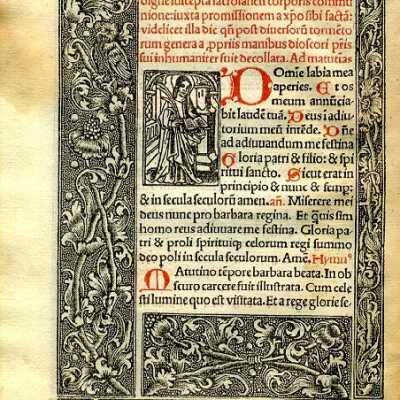 digne suscepta sacrosancti corporis commu
nione: iuxta promissionem a xp̄o sibi factā:
videlicet illa die qn̄ post diversorū tormēto
rum genera a ꝓpriis manibus dioscori pr̄is
sui inhumaniter fuit decollata. Ad matutīas
DOmīe labia mea
aperies. Et os
meum annūcia-
bit laudē tuā. Deus ī adiu
torium meū intēde. Dn̄e
ad adiuvandum me festina
Gloria patri & filio: & spi
ritui sancto. Sicut erat in
principio & nunc & semp:
& in secula seculorū amen. an̄. Miserere mei
deus nunc pro barbara regina. Et quīs sim
homo reus adiuuare me festina. Gloria pa
tri & proli spirituiq celorum regi summo
deo poli in secula seculorum. Amē. Hymnꝰ
MAtutino tēpore barbara beata. In ob
scuro carcere fuit illustrata. Cum cele
sti lumine quo est visitata. Et a rege glorie se-